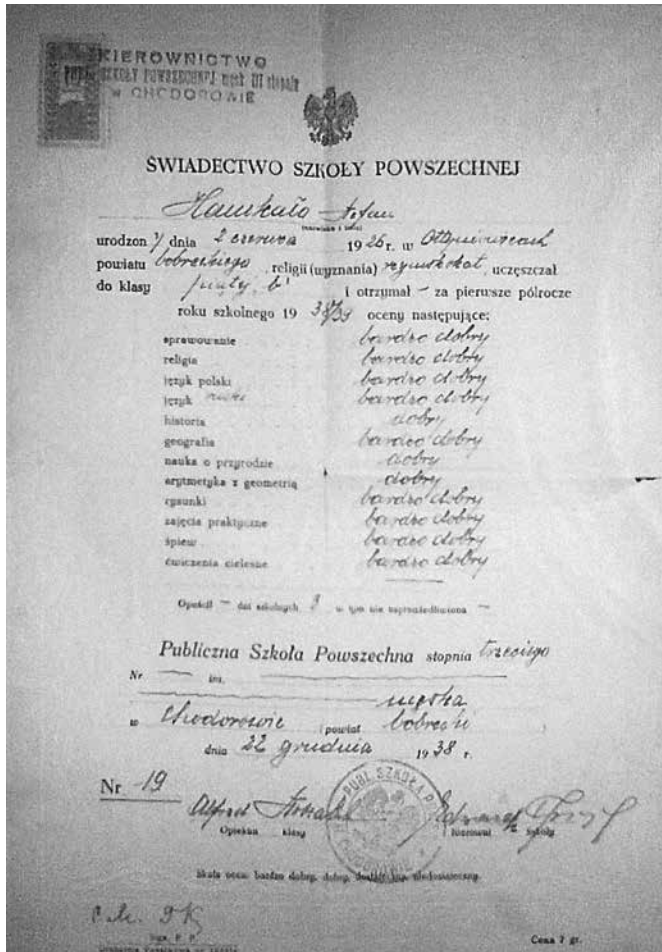 KIEROWNICTWO
PUBL. SZKOŁY POWSZECHNEJ męsk. III stopnia
w CHODOROWIE
ŚWIADECTWO SZKOŁY POWSZECHNEJ
Hamkało Stefan
(nazwisko i imię)
urodzon y dnia 2 czerwca 1926 r. w
powiatu bobreckiego, religii (wyznania) rzymskokat, uczęszczał
do klasy piątej b i otrzymał — za pierwsze półrocze
roku szkolnego 1938/39 oceny następujące:
sprawowanie bardzo dobry
religia bardzo dobry
język polski bardzo dobry
język ruski bardzo dobry
historia dobry
geografia bardzo dobry
nauka o przyrodzie dobry
arytmetyka z geometrią dobry
rysunki bardzo dobry
zajęcia praktyczne bardzo dobry
śpiew bardzo dobry
ćwiczenia cielesne bardzo dobry
Opuścił — dni szkolnych 3, w tym nie usprawiedliwiono —
Publiczna Szkoła Powszechna stopnia trzeciego
Nr — im.
męska
w Chodorowie powiat bobrecki
dnia 22 grudnia 1938 r.
Nr 19
PUBL. SZKOŁA
Alfred Edward
Opiekun klasy Kierownik szkoły
Skala ocen: bardzo dobry, dobry, dostateczny, niedostateczny.
Cena 7 gr.